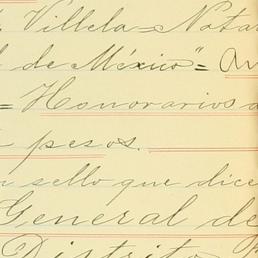 Villela = Notar
l de México" = 
= Honorarios a
pesos.
n sello que dice
General de
Distrito